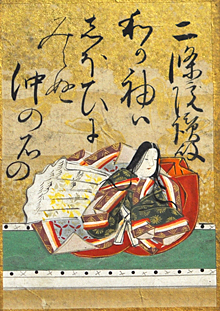 二條院讃岐
わか袖ハ
しほひに
みえぬ
沖の石の